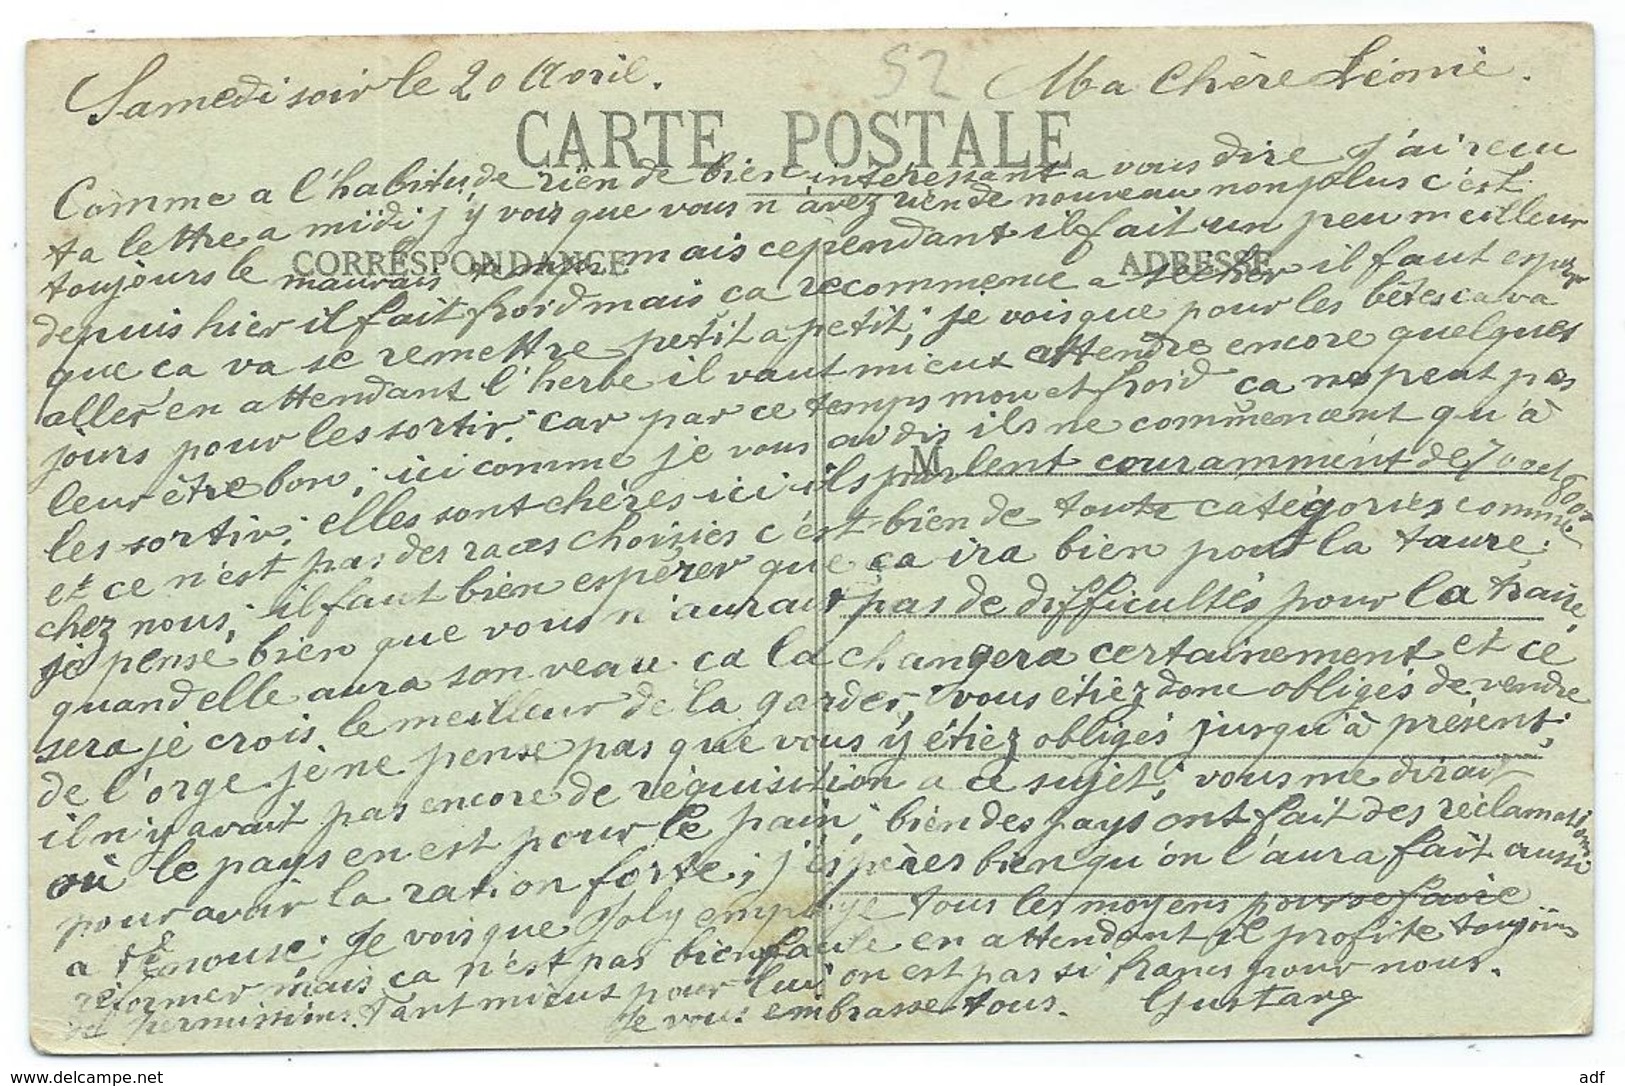 52
Samedi soir le 20 Avril.
Ma Chère Léonie.
CARTE POSTALE
Comme a l'habitude rien de bien intéressant a vous dire j'ai recu
ta lettre a midi j'y vois que vous n'avez rien de nouveau non plus c'est
CORRESPONDANCE
ADRESSE
toujours le mauvais temps mais cependant il fait un peu meilleur
depuis hier il fait froid mais ça recommence a sécher il faut espérer
que ca va se remettre petit a petit; je vois que pour les bêtes ca va
aller en attendant l'herbe il vaut mieux attendre encore quelques
jours pour les sortir. car par ce temps mou et froid ça ne peut pas
leur être bon; ici comme je vous ai dis ils ne commencent qu'à
M
les sortir; elles sont chères ici ils parlent couramment de
et ce n'est pas des races choisies c'est bien de toute catégories comme
chez nous; il faut bien espérer que ça ira bien pour la taure;
je pense bien que vous n'aurait pas de difficultés pour la traire,
quand elle aura son veau ca la changera certainement et ce
sera je crois le meilleur de la garder, vous étiez donc obligés de vendre
de l'orge je ne pense pas que vous y étiez obligés jusqu'à présent;
il n'y avait pas encore de réquisition a ce sujet; vous me dirait
où le pays en est pour le pain; bien des pays ont fait des réclamations
pour avoir la ration forte; j'espères bien qu'on l'aura fait aussi
a Je vois que Joly employe tous les moyens pour se faire
réformer mais ça n'est pas bien facile en attendant il profite toujours
permissions. Tant mieux pour lui on est pas si francs pour nous.
Je vous embrasse tous. Gustave
www.delcampe.net
adf